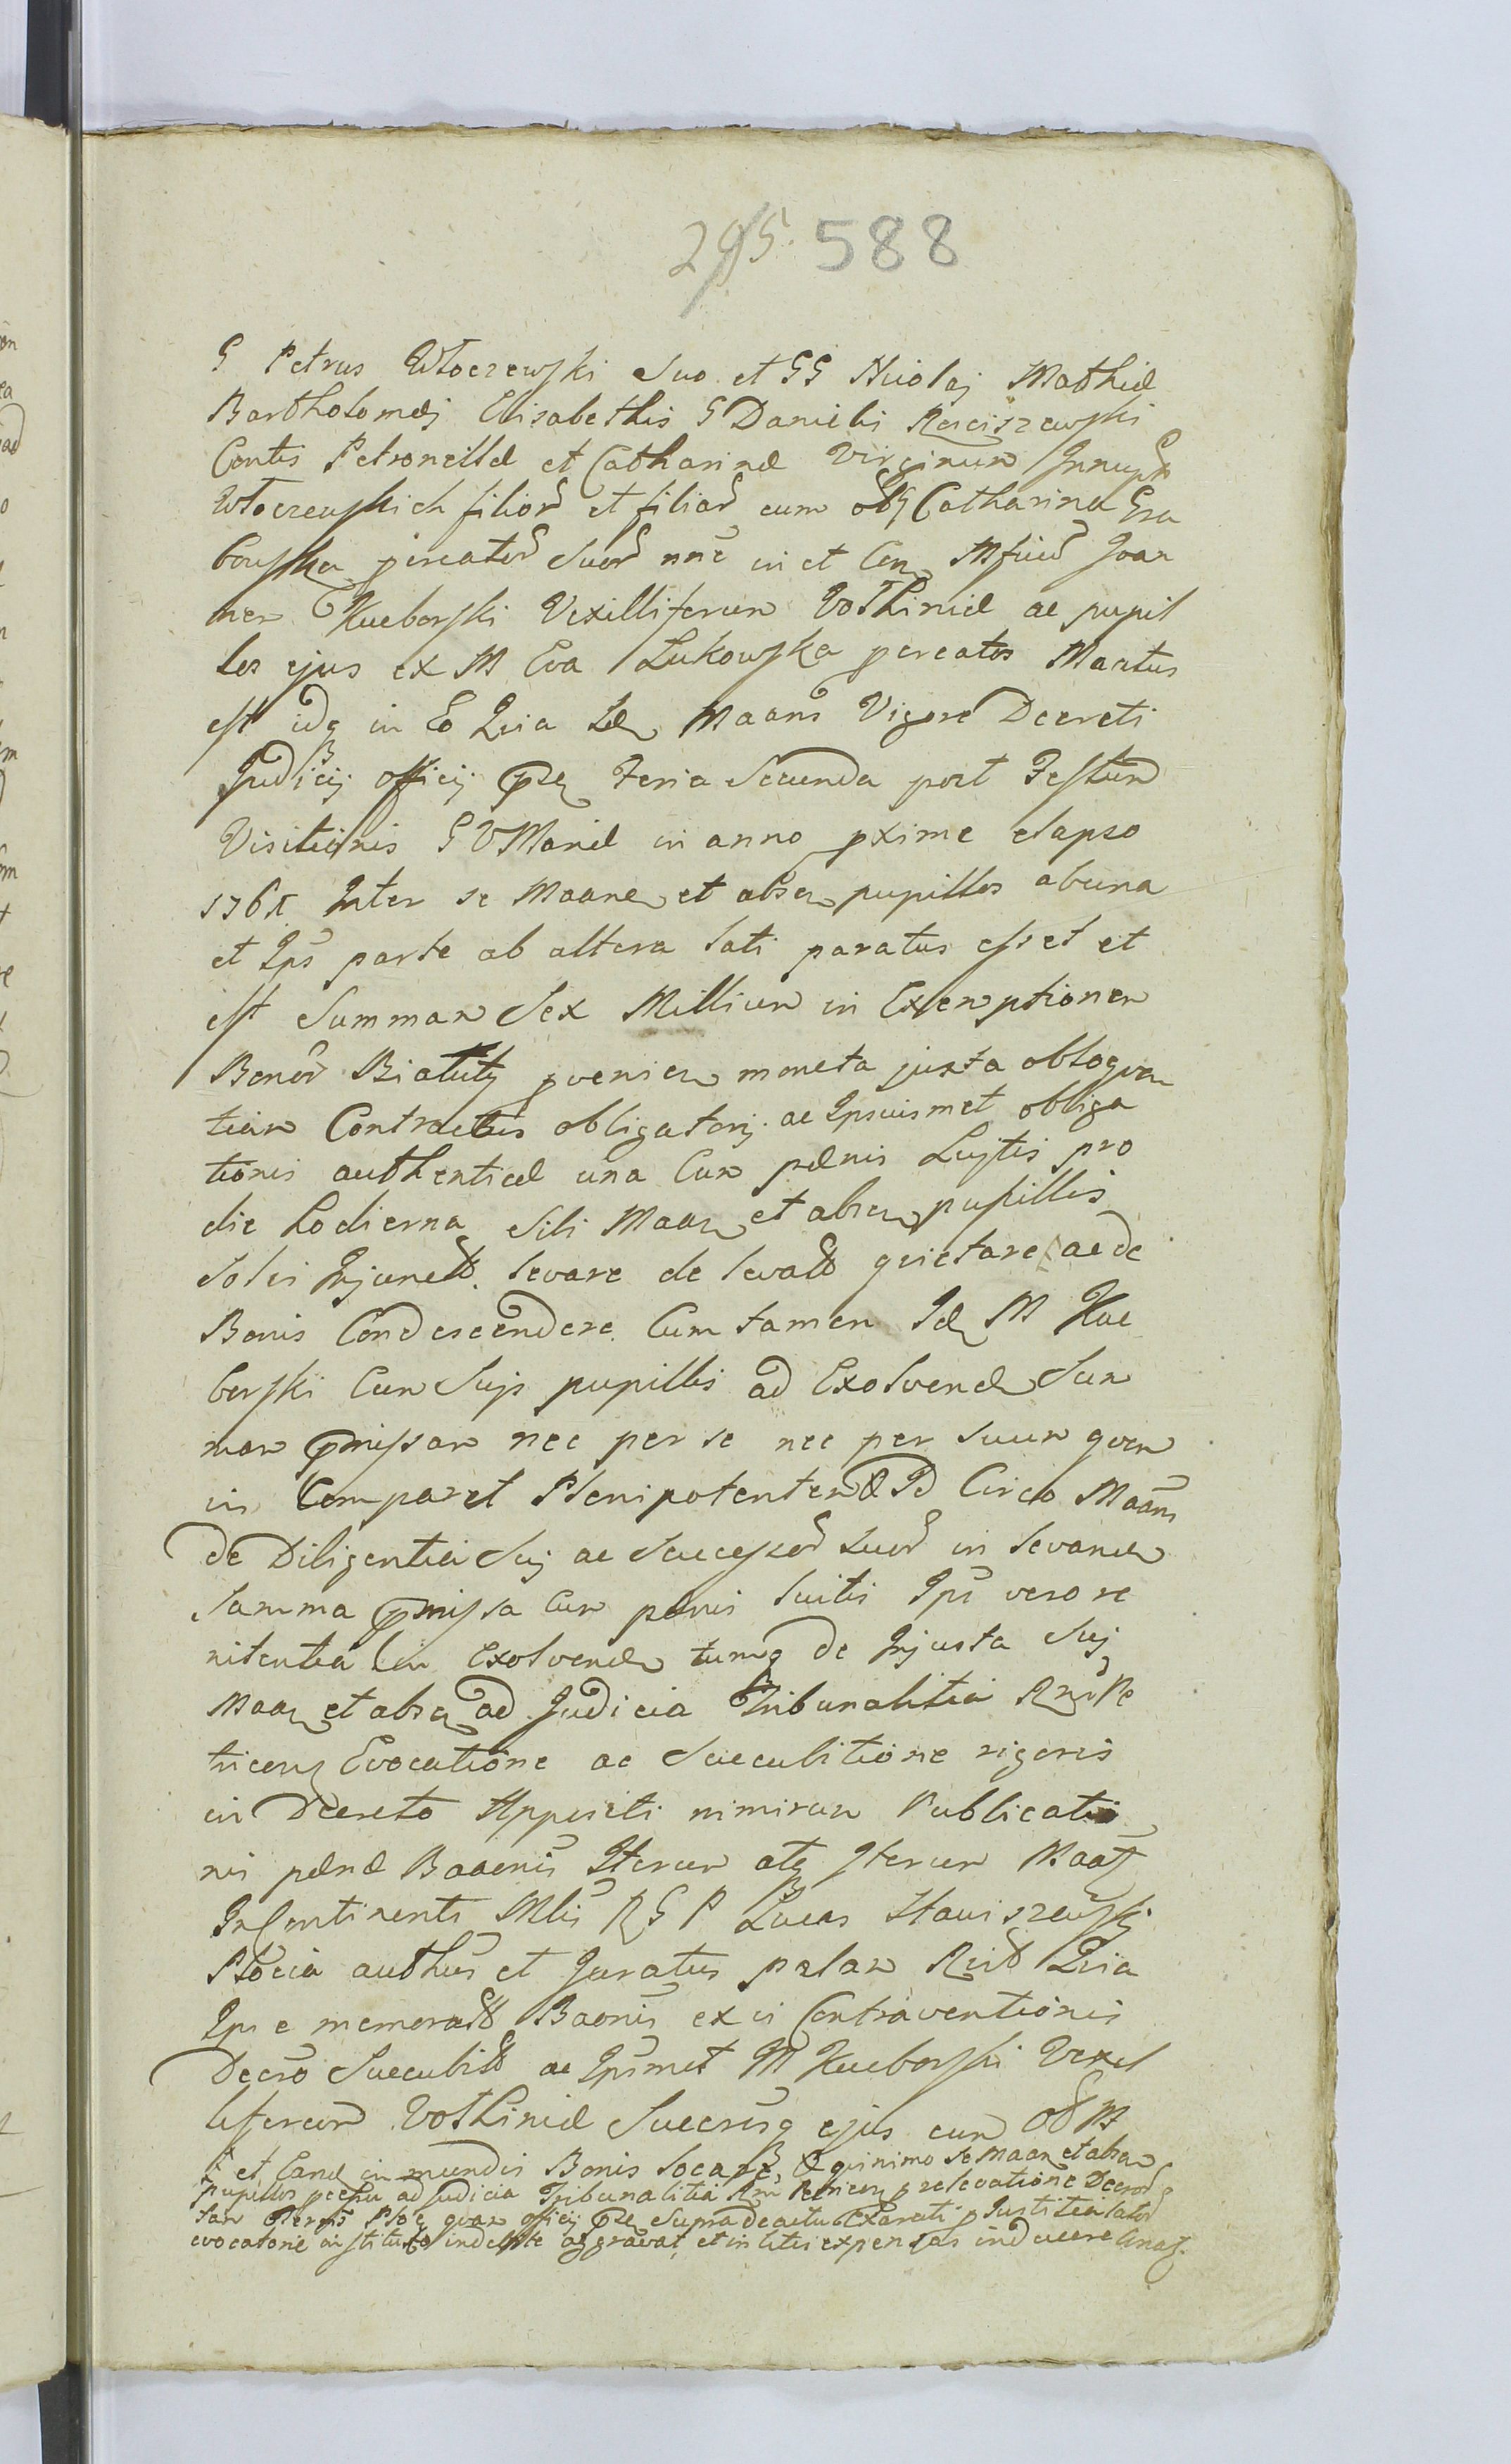 295. 588
G Petrus Włoczewski suo et GG Nicolaj Mathiæ
Bartholomæj Elisabethis G Danielis
Contis Petronellæ et Catharinæ Virginum Innupt
Włoczewskich filior et filiar cum olim G Catharina Gra
bowska pcreator suor nne in et Con Mfcum Joan
nem Kuczborski Vexilliferum Wołhiniæ ac pupil
los ejus ex M Eva Łukowska pcreatos Maatus
est idq in Eo Quia Idem Maans Vigore Decreti
Judicij officij pntis Feria Secunda post Festum
Visitionis G V Mariæ in anno pxime elapso
1761 Inter se Maanem et absen pupillos ab una
et Ips parte ab altera lati paratus esset et
est Summam Sex Millium in Exemptionem
Bonor Białuty pvenien moneta juxta obloquen
tiam Contractus obligatorij ac Ipsiusmet obliga
tionis authenticæ una Cum pænis Lujtis pro
die hodierna sibi Maan et absen pupillis
solvi Injunctt. levare de levatt quietare ac de
Bonis Condescendere Cum tamen Idem M Kuc
borski Cum Sujs pupillis ad Exolvend Sum
mam pmissam nec per se nec per suum quem
vis Comparet Plenipotentem & Id Circo Maans
de Diligentia Suj ac Successor suor in levanda
Summa pmissa Cum pænis luitis Ips vero re
nitentia in exolvend tumq de Injusta Suj
Maan et absen ad Judicia Tribunalitia Rni Pe
tricoven Evocatione ac Succubitione rigoris
in Decreto Appositi nimirum Publicatio
nis pænæ Baaenis Iterum atq Iterum Maat
In Continenti Mlis R G P Lucas
authus et Juratus palam Quia
Ips e memoratt Baonis ex vi Contraventionis
Decro Succubitt ac Ipsmet M Kucborski Vexil
liferum Wołhiniæ Succrusq ejus cum olim M
et Eand in mundis Bonis locare, & quinimo se Maan et absen
pupillos pcessu ad Judicia Tribunalitia Rni Petricoven p relevatione Decror
tam quam officij pntis Supra de actu Exarati p Justitia lator
evocatone instituto indebite aggravat, et in litis expensas inducere